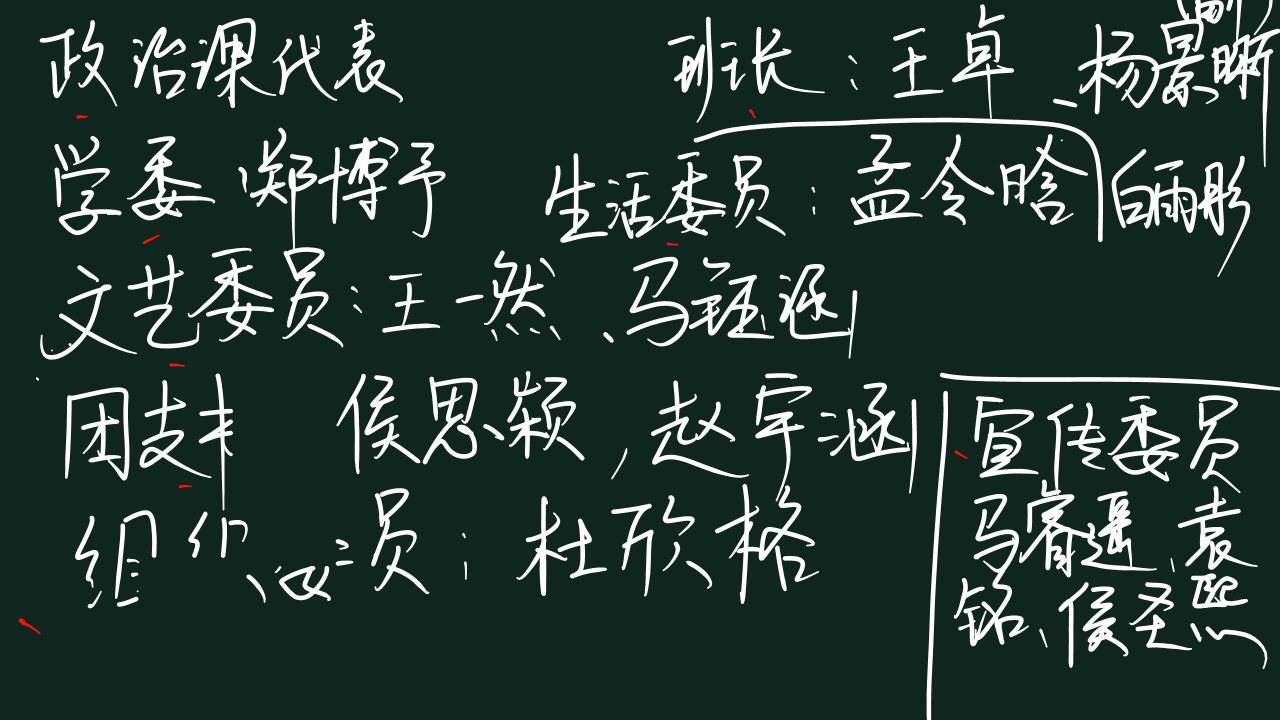 政治课代表 班长：王卓、杨景晰(副)
学委 郑博予 生活委员：孟令晗 白雨彤
文艺委员：王一然、马钰涵
团支书 侯思颖，赵宇涵 宣传委员
组织委员：杜欣格 马睿遥、袁
铭、侯圣熙